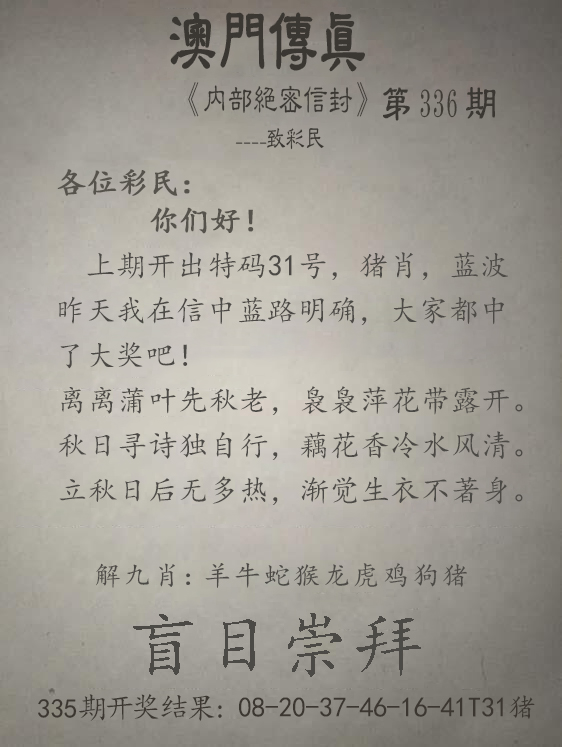 澳門傳眞
《内部絕密信封》第336期
----致彩民
各位彩民：
你们好！
上期开出特码31号，猪肖，蓝波
昨天我在信中蓝路明确，大家都中
了大奖吧！
离离蒲叶先秋老，袅袅萍花带露开。
秋日寻诗独自行，藕花香冷水风清。
立秋日后无多热，渐觉生衣不著身。
解九肖：羊牛蛇猴龙虎鸡狗猪
盲目崇拜
335期开奖结果：08-20-37-46-16-41T31猪